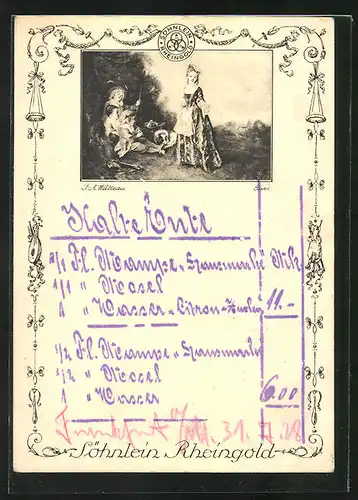 SÖHNLEIN RHEINGOLD
J. A. Watteau
Kalte Ente
2/1 Fl. Mampe „ Hausmarke Mk.
1/1 „ Mosel
1 „ Wasser „ Citron-Zucker 11.-
1/2 Fl. Mampe „ Hausmarke
1/2 „ Mosel
1 „ Wasser 6.00
Frankfurt 31. 28
Söhnlein Rheingold